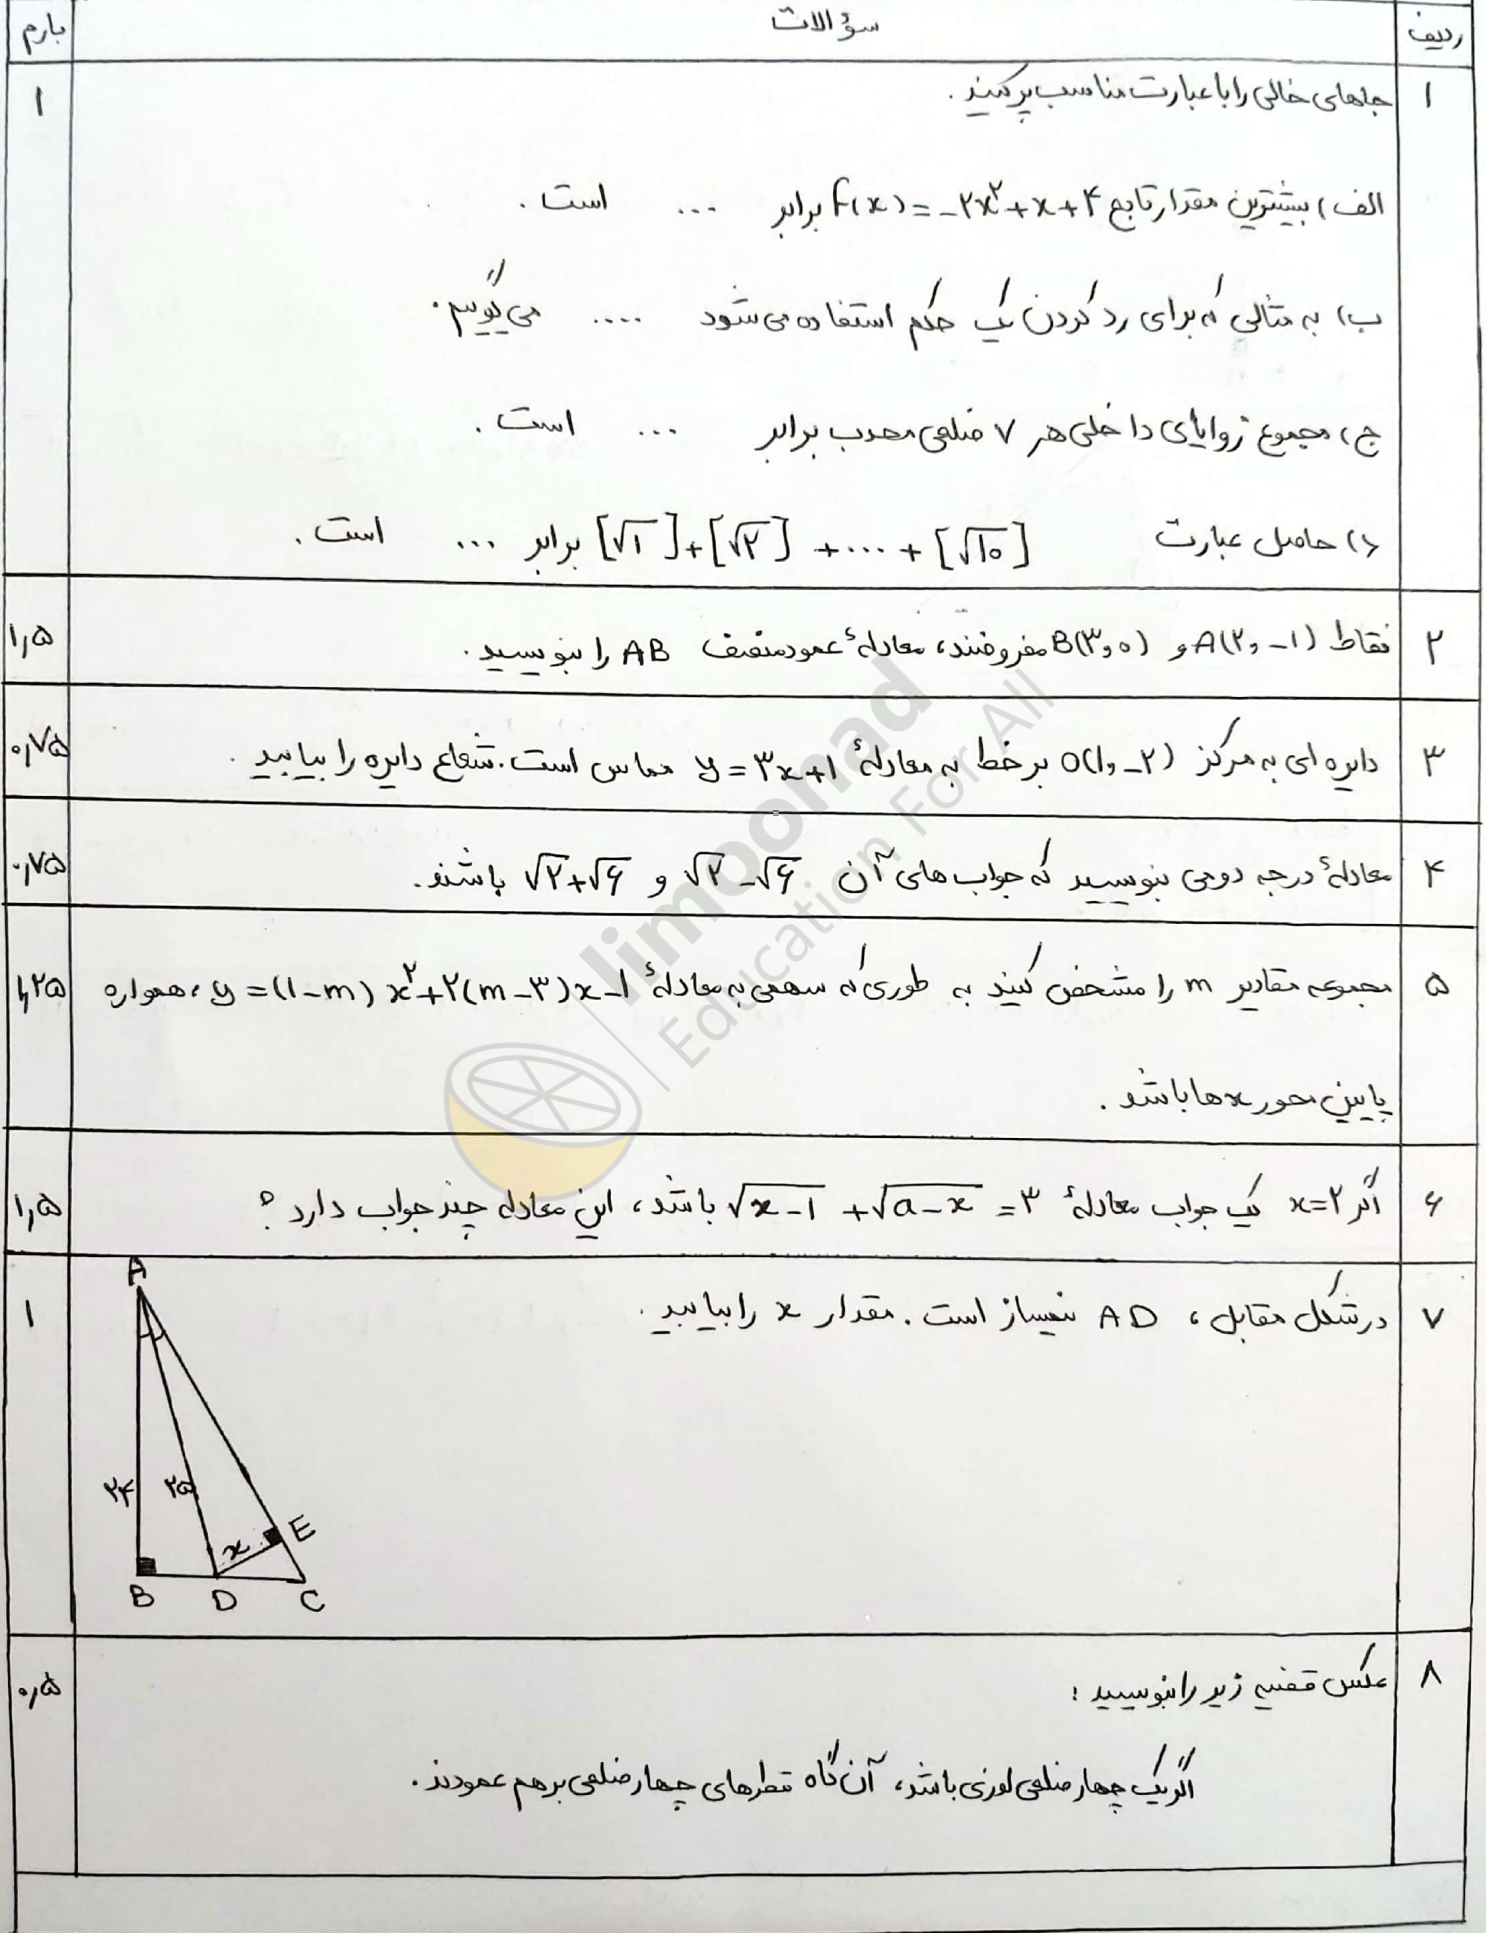 ردیف سؤالات بارم
۱ جاهای خالی را با عبارت مناسب پر کنید. ۱
الف) بیشترین مقدار تابع f(x) = -۲x²+x+۴ برابر ... است.
ب) به مثالی که برای رد کردن یک حکم استفاده می شود .... می گوییم.
ج) مجموع زوایای داخلی هر ۷ ضلعی محدب برابر ... است.
د) حاصل عبارت [√۱]+[√۲]+...+[√۱۰] برابر ... است.
۲ نقاط A(۲,-۱) و B(۳,۰) مفروضند، معادلهٔ عمودمنصف AB را بنویسید. ۱,۵
۳ دایره ای به مرکز O(۱,-۲) بر خط به معادلهٔ y=۳x+۱ مماس است. شعاع دایره را بیابید. ۰,۷۵
۴ معادلهٔ درجه دومی بنویسید که جواب های آن √۲-√۶ و √۲+√۶ باشند. ۰,۷۵
۵ مجموعه مقادیر m را مشخص کنید به طوری که سهمی به معادلهٔ y=(۱-m)x²+۲(m-۳)x-۱، همواره ۱,۲۵
پایین محور xها باشد.
۶ اگر x=۲ یک جواب معادلهٔ √x-۱ + √a-x = ۳ باشد، این معادله چند جواب دارد؟ ۱,۵
۷ در شکل مقابل، AD نیمساز است. مقدار x را بیابید. ۱
A
۲۴ ۲۵
x E
B D C
۸ عکس قضیه زیر را بنویسید: ۰,۵
اگر یک چهارضلعی لوزی باشد، آن گاه قطرهای چهارضلعی برهم عمودند.
limoonad
Education For All